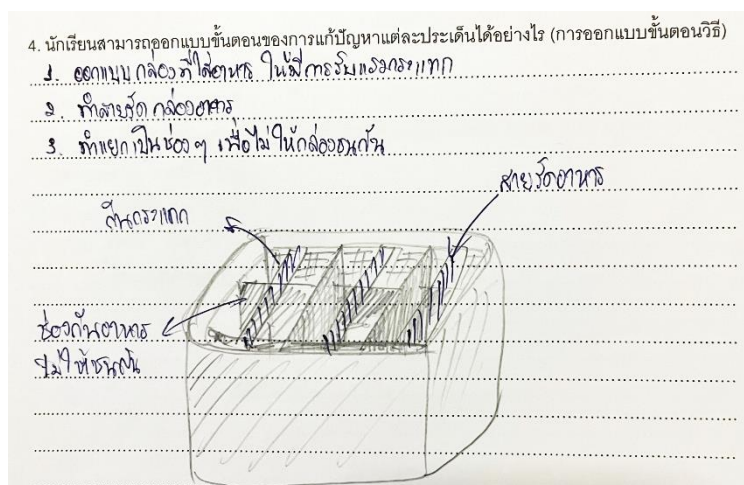 4. นักเรียนสามารถออกแบบขั้นตอนของการแก้ปัญหาแต่ละประเด็นได้อย่างไร (การออกแบบขั้นตอนวิธี)
1. ออกแบบกล่องที่ใส่อาหาร ให้มีการรับแรงกระแทก
2. ทำสายรัดกล่องอาหาร
3. ทำแยกเป็นช่องๆ เพื่อไม่ให้กล่องชนกัน
สายรัดอาหาร
กันกระแทก
ช่องกันอาหาร
ไม่ให้ชนกัน